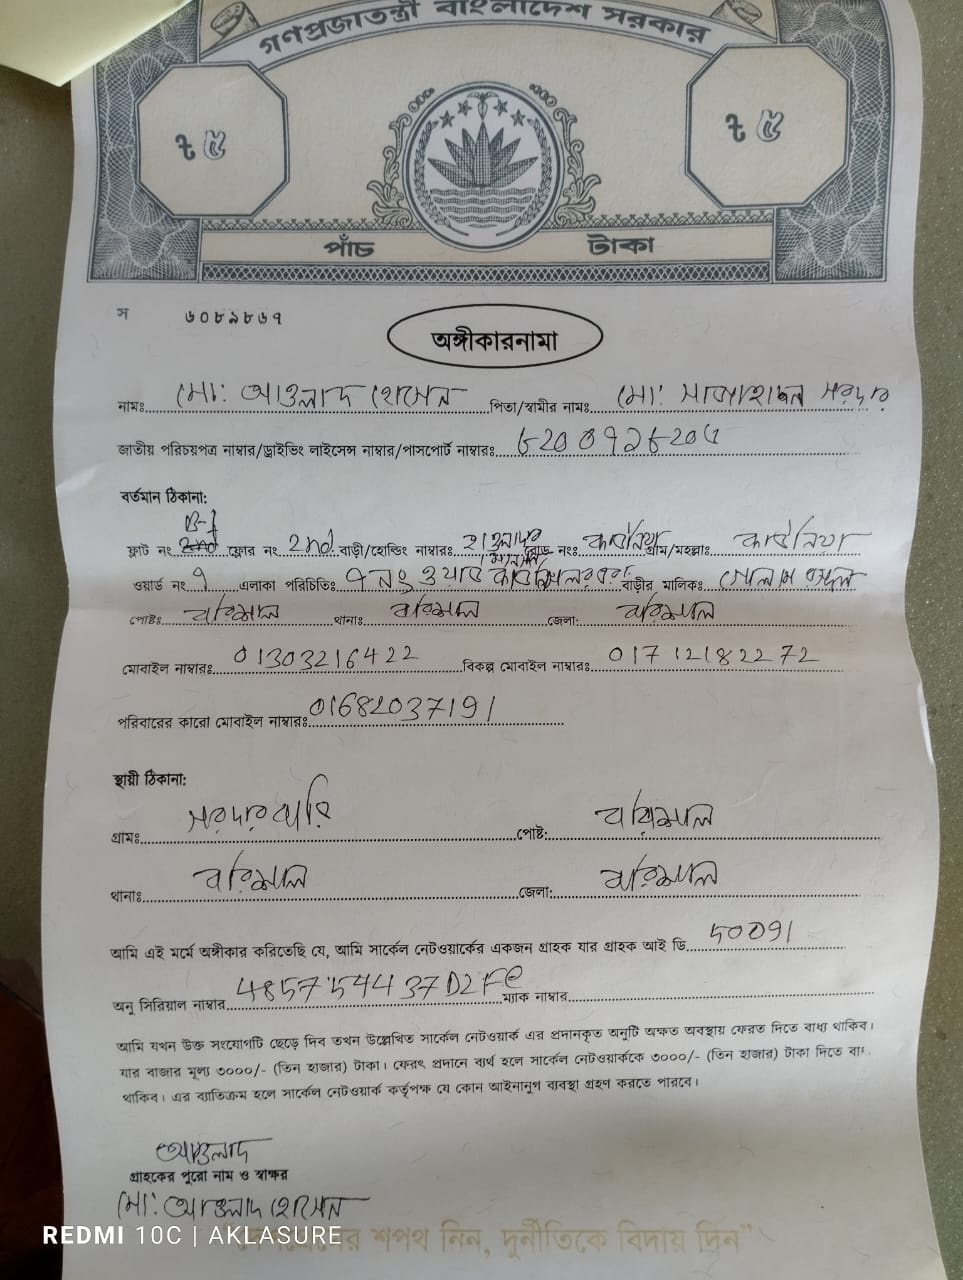 গণপ্রজাতন্ত্রী বাংলাদেশ সরকার
৳ ৫ ৳ ৫
পাঁচ টাকা
স ৬০৮৯৮৬৭
অঙ্গীকারনামা
নামঃ মো: আওলাদ হোসেন পিতা/স্বামীর নামঃ মো: সরদার
জাতীয় পরিচয়পত্র নাম্বার/ড্রাইভিং লাইসেন্স নাম্বার/পাসপোর্ট নাম্বারঃ
বর্তমান ঠিকানা:
B-1
ফ্লাট নং ফ্লোর নং 2nd বাড়ী/হোল্ডিং নাম্বারঃ হাওলাদার রোড নংঃ কাউনিয়া গ্রাম/মহল্লাঃ কাউনিয়া
ওয়ার্ড নং ৭ এলাকা পরিচিতিঃ ৭ নং ওয়ার্ড বাড়ীর মালিকঃ গোলাম
পোষ্টঃ বরিশাল থানাঃ বরিশাল জেলা: বরিশাল
মোবাইল নাম্বারঃ 01303216422 বিকল্প মোবাইল নাম্বারঃ 01712182272
পরিবারের কারো মোবাইল নাম্বারঃ 01682037191
স্থায়ী ঠিকানা:
গ্রামঃ সরদার বাড়ি পোষ্ট: বরিশাল
থানাঃ বরিশাল জেলা: বরিশাল
আমি এই মর্মে অঙ্গীকার করিতেছি যে, আমি সার্কেল নেটওয়ার্কের একজন গ্রাহক যার গ্রাহক আই ডি 50091
অনু সিরিয়াল নাম্বার 485754437D2FE ম্যাক নাম্বার
আমি যখন উক্ত সংযোগটি ছেড়ে দিব তখন উল্লেখিত সার্কেল নেটওয়ার্ক এর প্রদানকৃত অনুটি অক্ষত অবস্থায় ফেরত দিতে বাধ্য থাকিব।
যার বাজার মূল্য ৩০০০/- (তিন হাজার) টাকা। ফেরৎ প্রদানে ব্যর্থ হলে সার্কেল নেটওয়ার্ককে ৩০০০/- (তিন হাজার) টাকা দিতে
থাকিব। এর ব্যতিক্রম হলে সার্কেল নেটওয়ার্ক কর্তৃপক্ষ যে কোন আইনানুগ ব্যবস্থা গ্রহণ করতে পারবে।
আওলাদ
গ্রাহকের পুরো নাম ও স্বাক্ষর
মো: আওলাদ হোসেন
শপথ নিন, দুর্নীতিকে বিদায় দিন"
REDMI 10C | AKLASURE